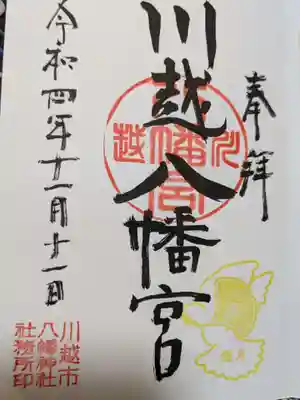 奉拝
川越八幡宮
令和四年十一月十一日
川越市
八幡神社
社務所印